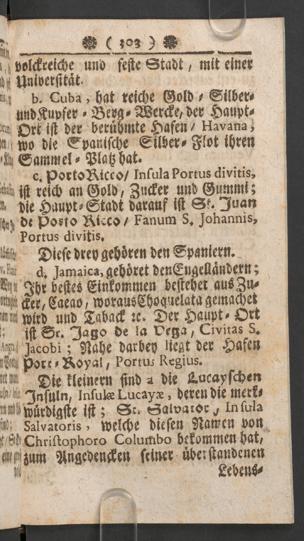 ( 303 )
volckreiche und feste Stadt / mit einer
Universität.
b. Cuba, hat reiche Gold- Silber-
und Kupfer- Berg-Wercke, der Haupt-
Ort ist der berühmte Hafen / Havana;
wo die Spanische Silber-Flot ihren
Sammel-Platz hat.
c. Porto Ricco / Insula Portus divitis,
ist reich an Gold, Zucker und Gummi;
die Haupt-Stadt darauf ist St. Juan
de Porto Ricco / Fanum S. Johannis,
Portus divitis.
Diese drey gehören den Spaniern.
d, Jamaica, gehöret den Engelländern;
Ihr bestes Einkommen bestehet aus Zu-
cker, Cacao, woraus Choquelata gemachet
wird und Taback ꝛc. Der Haupt-Ort
ist St. Jago de la Vega, Civitas S.
Jacobi; Nahe darbey liegt der Hafen
Port-Royal, Portus Regius.
Die kleinern sind a die Lucayschen
Insuln, Insulæ Lucayæ, deren die merk-
würdigste ist; St. Salvator, Insula
Salvatoris, welche diesen Namen von
Christophoro Columbo bekommen hat,
zum Angedencken seiner überstandenen
Lebens-